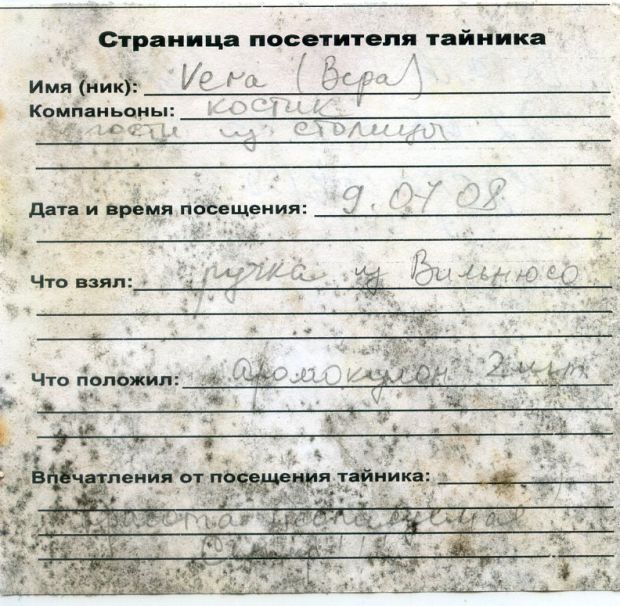 Страница посетителя тайника
Имя (ник): Vera (Вера)
Компаньоны: костик
гости из столицы
Дата и время посещения: 9.07 08
Что взял: ручка из Вильнюса
Что положил: аромокулон 2шт
Впечатления от посещения тайника:
работа